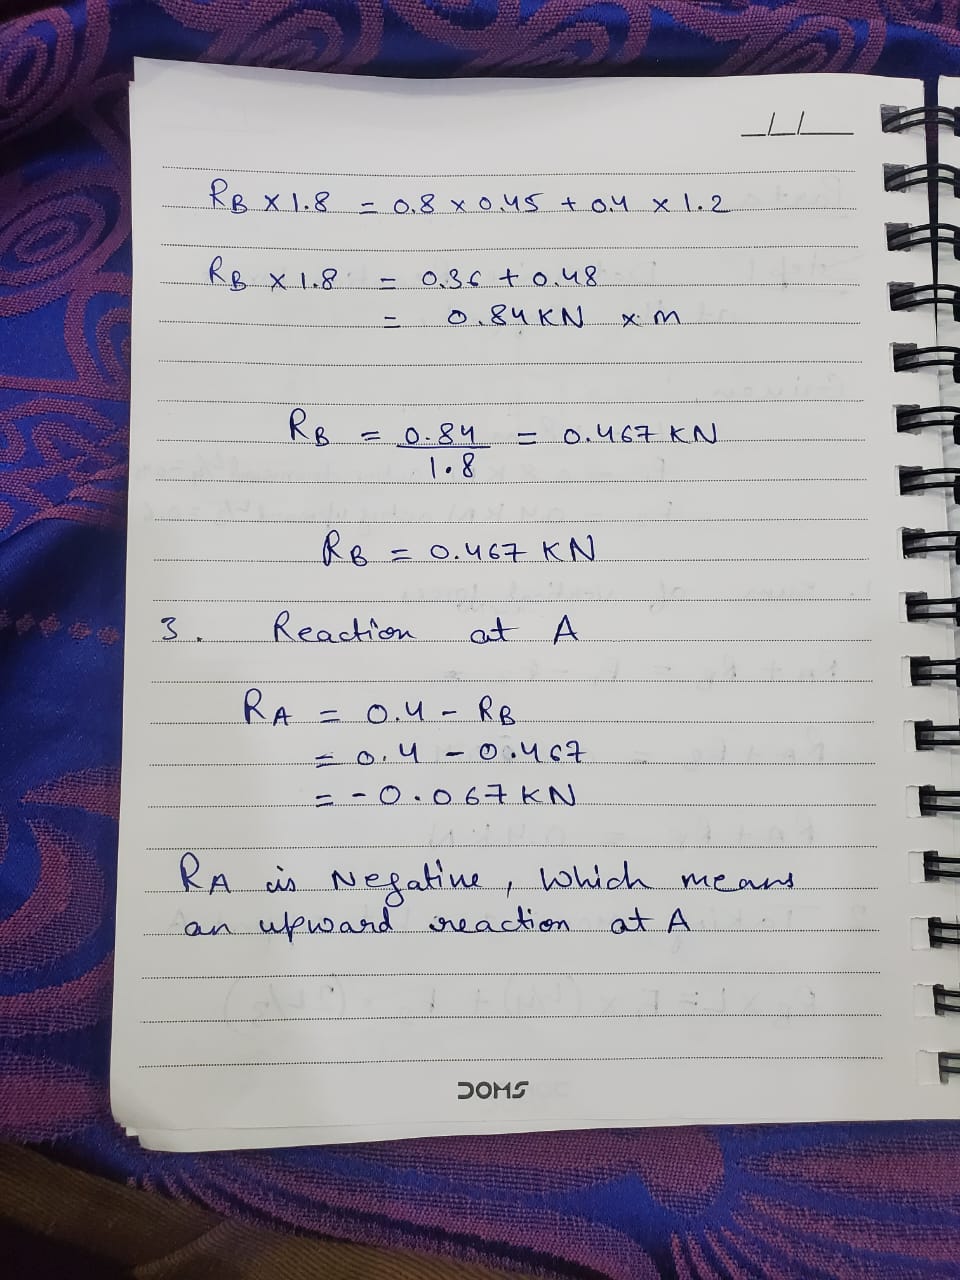 _/_/___
RB × 1.8 = 0.8 × 0.45 + 0.4 × 1.2
RB × 1.8 = 0.36 + 0.48
= 0.84 KN × m
RB = 0.84/1.8 = 0.467 KN
RB = 0.467 KN
3. Reaction at A
RA = 0.4 - RB
= 0.4 - 0.467
= -0.067 KN
RA is Negative, Which means
an upward reaction at A
DOMS